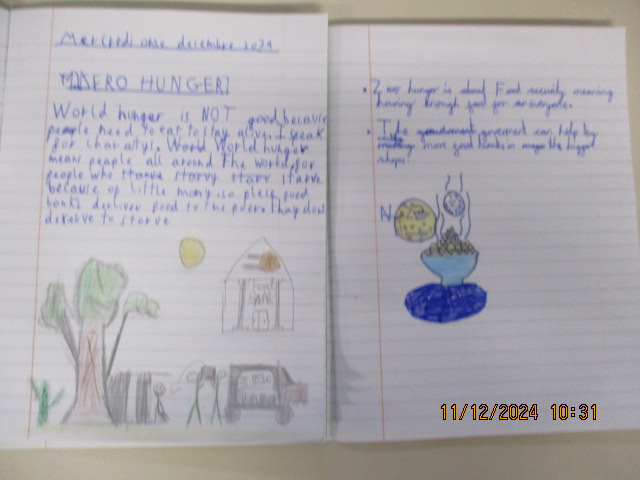 Mercredi onse decembre 2024
ZERO HUNGER
World hunger is NOT good because
people need to eat to stay alive. I speak
for charatys. World World hunger
means people all around the world for
people who starve starvy starv starve
because of little mony so plese food
banks deliver food to the poor. Thay dont
deserve to starve
BANK
ZERO
HUNGER
• Zero hunger is about Food security meaning
having enough food for everyone.
• The government goverment can help by
making more food banks in the bigger
shops.
N Zero
11/12/2024 10:31